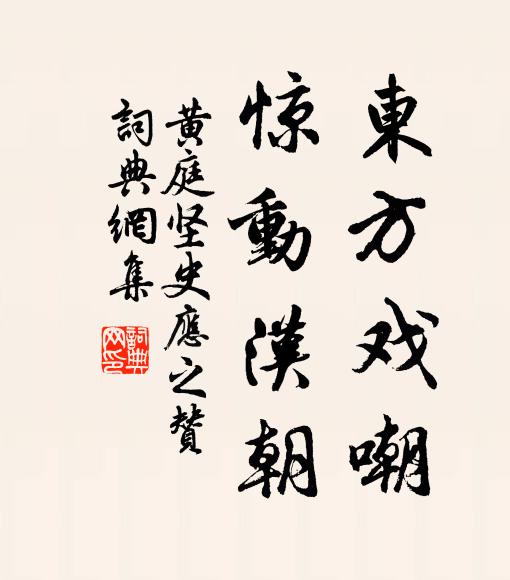 東方戏嘲
惊動漢朝
黄庭坚史應之贊
詞典網集
詞典網印